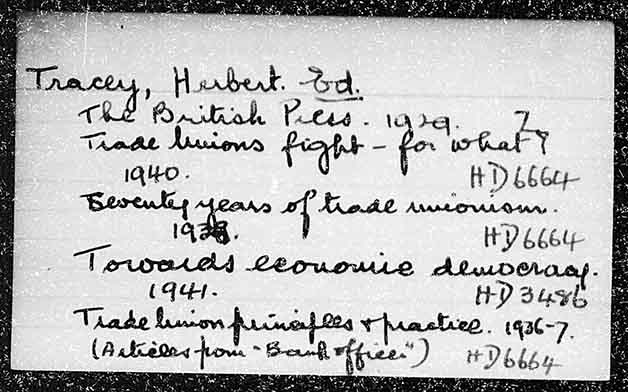 Tracey, Herbert. Ed.
The British Press. 1929. Z.
Trade Unions fight - for what?
1940. HD6664
Seventy years of trade unionism.
1938. HD6664
Towards economic democracy.
1941. HD3486
Trade Union principles & practice. 1936-7.
(Articles from "Bank Officer") HD6664